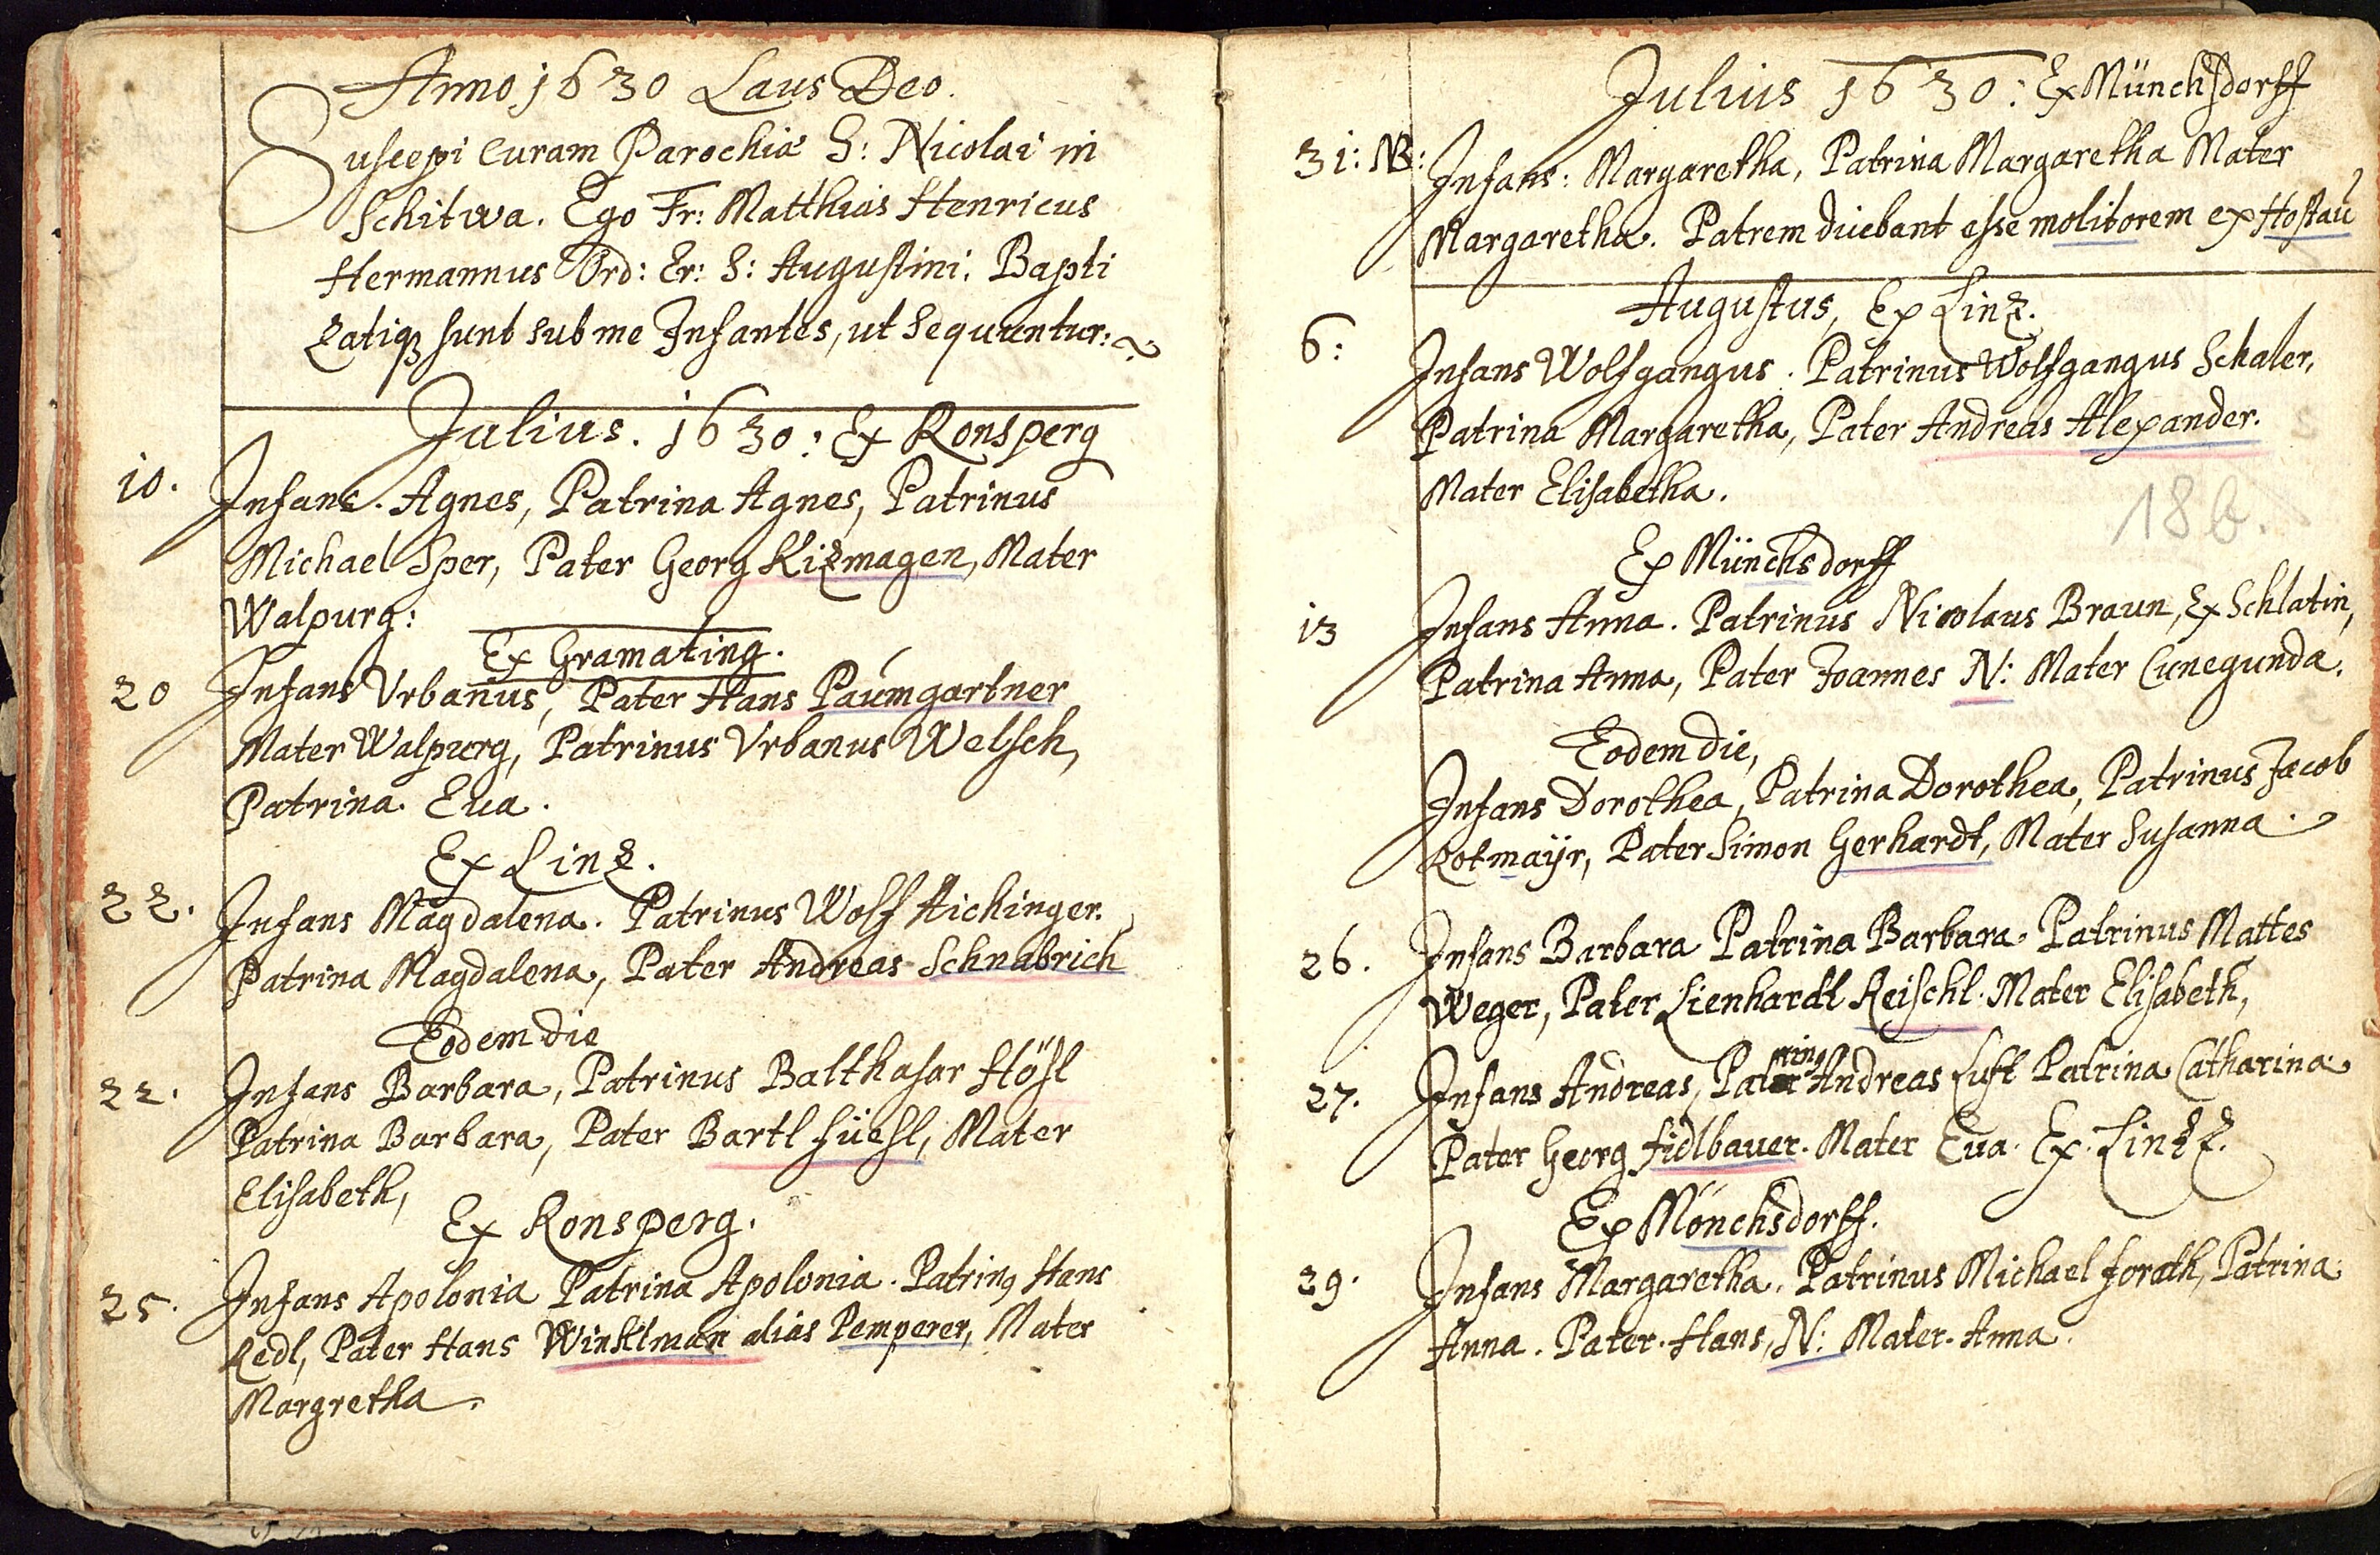 Anno 1630 Laus Deo.
Suscepi Curam Parochiæ S: Nicolai in
Schitwa. Ego Fr: Matthias Henricus
Hermannus Ord: Er: S: Augustini. Bapti
zatiqꝫ sunt sub me Infantes, ut sequuntur:
Julius. 1630: Ex Ronsperg
10. Infans. Agnes, Patrina Agnes, Patrinus
Michael Sper, Pater Georg Kizmagen, Mater
Walpurg:
Ex Gramating.
20 Infans Vrbanus, Pater Hans Paumgartner
Mater Walpurg, Patrinus Vrbanus Welsch,
Patrina. Eua.
Ex Linz.
22. Infans Magdalena. Patrinus Wolf Aichinger.
Patrina Magdalena, Pater Andreas Schnabrich
Eodem die
22. Infans Barbara, Patrinus Balthasar Hösl
Patrina Barbara, Pater Bartl süesl, Mater
Elisabeth,
Ex Ronsperg.
25. Infans Apolonia Patrina Apolonia. Patrinꝰ Hans
Redl, Pater Hans Winklman alias Pemperer, Mater
Margretha.
Julius 1630: Ex Münchsdorff
31: NB: Infans: Margaretha, Patrina Margaretha Mater
Margaretha. Patrem dicebant esse molitorem ex Hostau
Augustus, Ex Linz.
6: Infans Wolfgangus. Patrinus Wolfgangus Schaler,
Patrina Margaretha, Pater Andreas Alexander.
Mater Elisabetha.
18b.
Ex Münchsdorff
13 Infans Anna. Patrinus Nicolaus Braun, Ex Schlatin,
Patrina Anna, Pater Joannes N: Mater Cunegunda.
Eodem die,
Infans Dorothea, Patrina Dorothea, Patrinus Jacob
Rotmaÿr, Pater Simon Gerhardt, Mater Susanna.
26. Infans Barbara Patrina Barbara. Patrinus Mattes
Weger, Pater Lienhardt Reischl. Mater Elisabeth,
27. Infans Andreas, Patrinꝰ Andreas Luft Patrina Catharina
Pater Georg fidlbauer. Mater Eua. Ex. Linzz.
Ex Mönchsdorff.
29. Infans Margaretha. Patrinus Michael forath, Patrina
Anna. Pater. Hans, N: Mater. Anna.